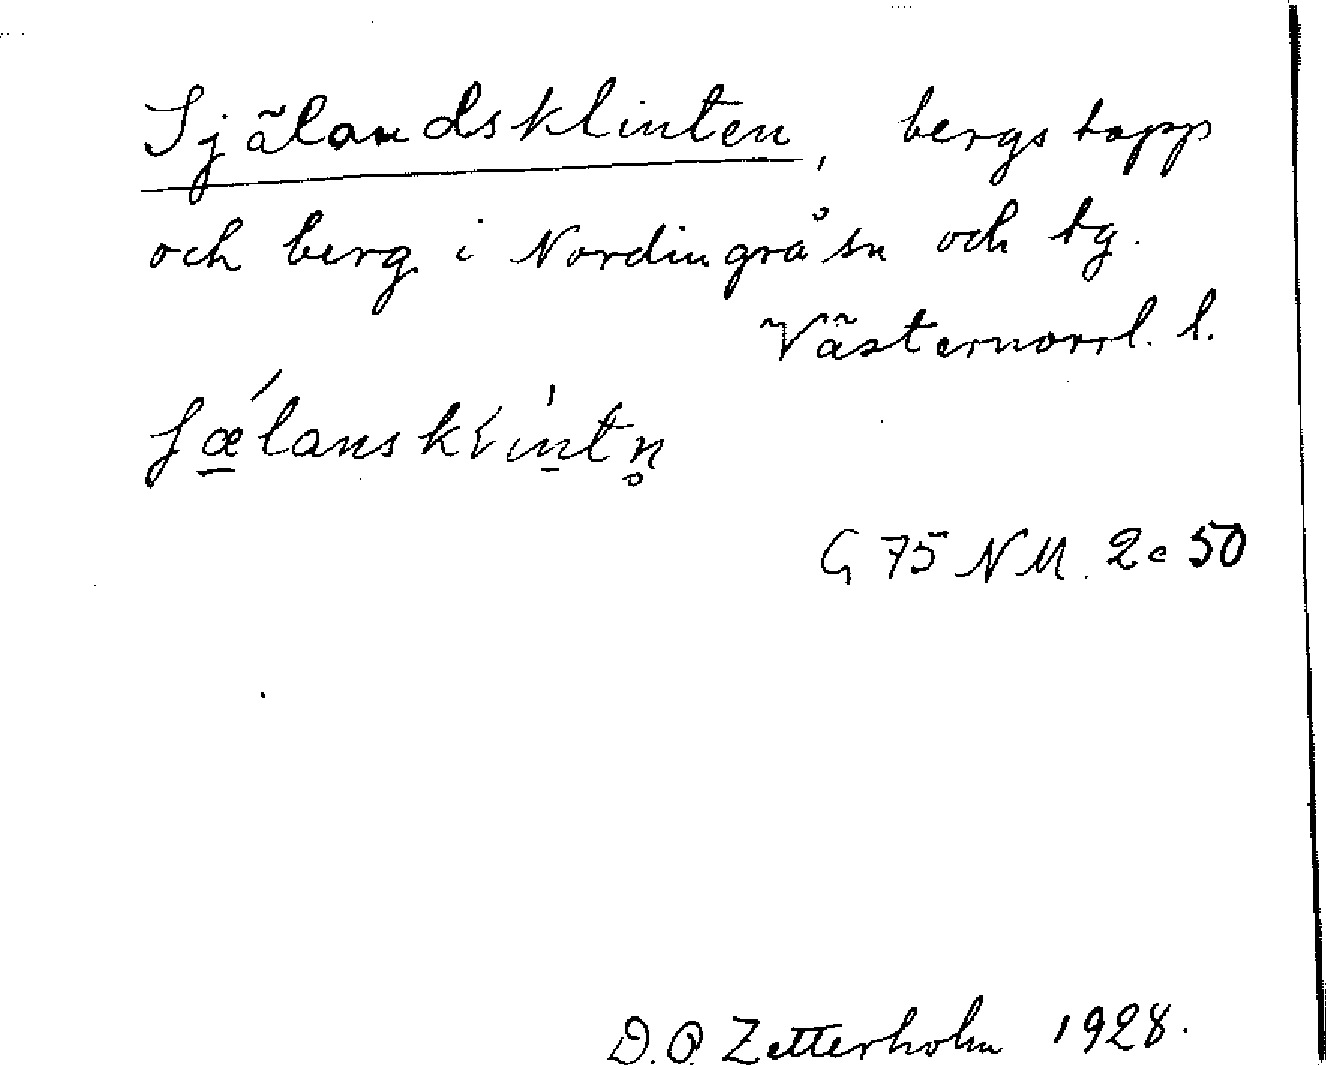 Själandsklinten, bergstopp
och berg i Nordingrå sn och tg.
Västernorrl. l.
ʃǽlansklintn̥
G 75 NM. 2c 50
D. O. Zetterholm 1928.